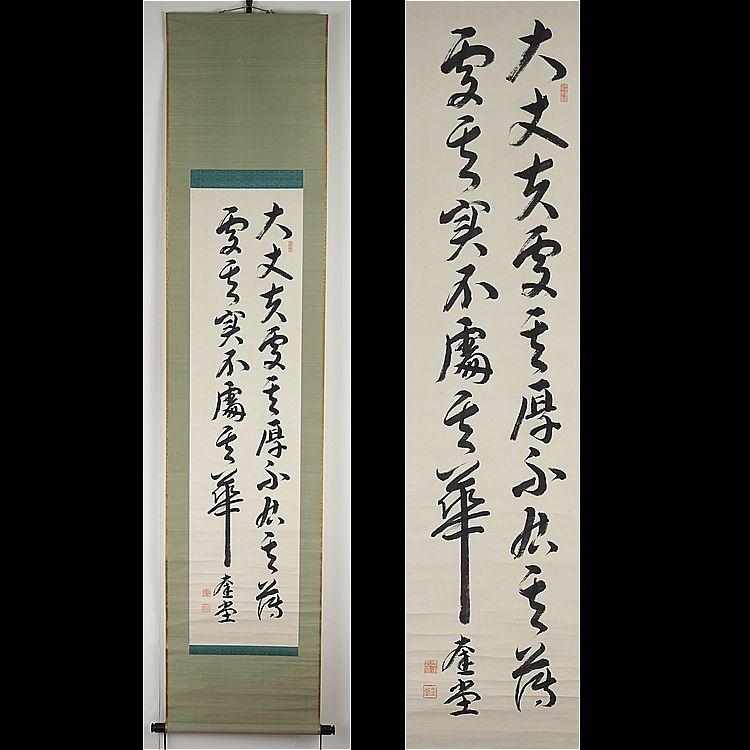 大丈夫處其厚不居其薄
處其実不處其華
奎堂
大丈夫處其厚不居其薄
處其実不處其華
奎堂